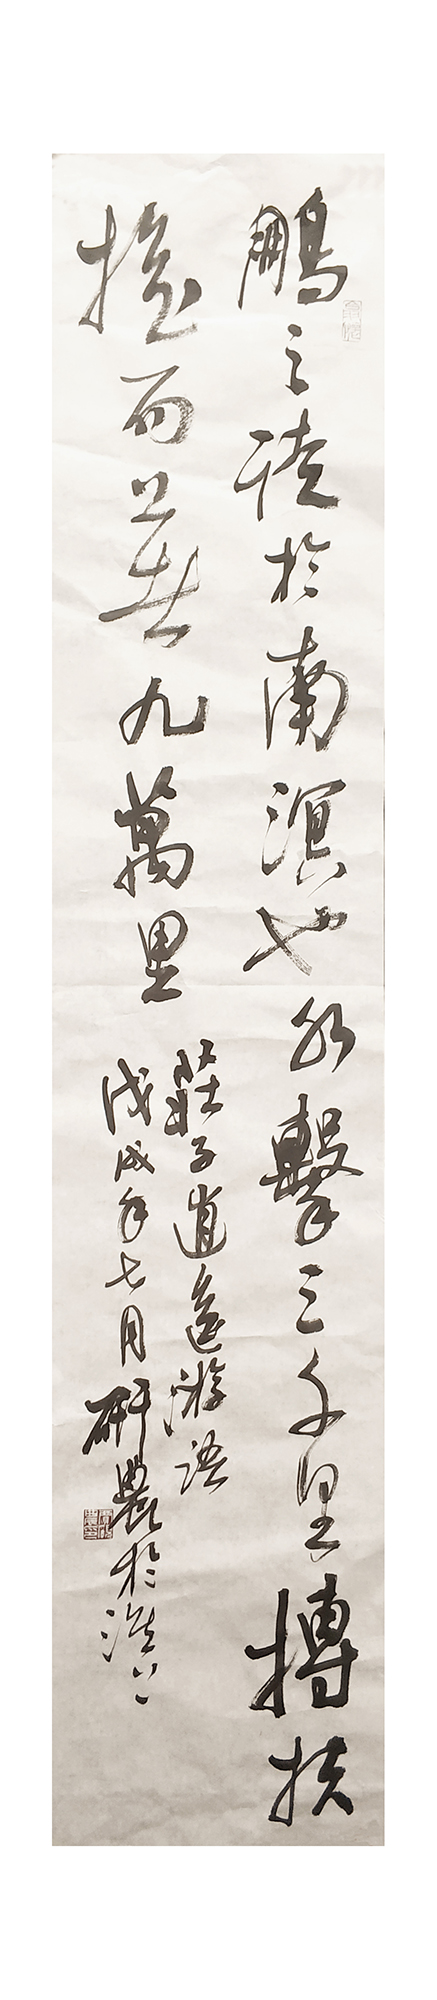 鵬之徙於南溟也水擊三千里摶扶
搖而上者九萬里
莊子逍遙游語
戊戌年七月研農於淮上